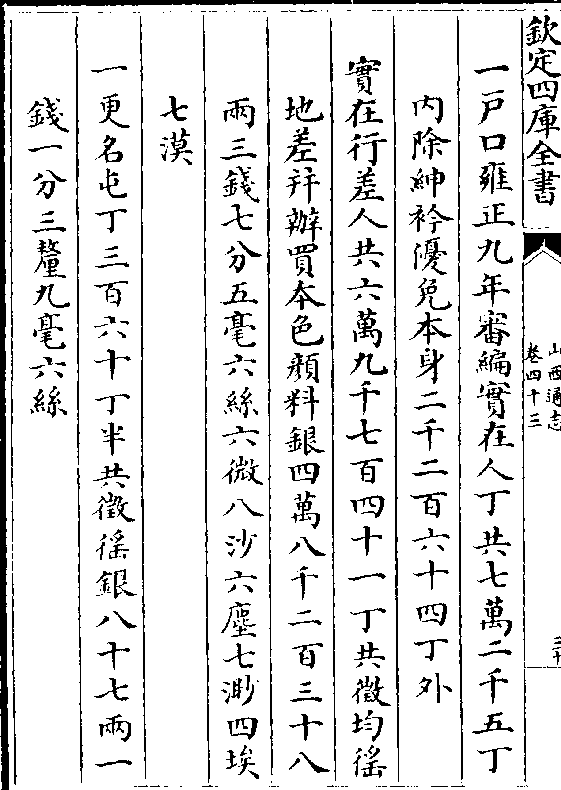 欽定四庫全書
山西通志
卷四十三
一戸口雍正九年審編實在人丁共七萬二千五丁
内除紳衿優免本身二千二百六十四丁外
實在行差人共六萬九千七百四十一丁共徵均徭
地差并辦買本色顔料銀四萬八千二百三十八
兩三錢七分五毫六絲六微八沙六塵七渺四埃
七漠
一更名屯丁三百六十丁半共徵徭銀八十七兩一
錢一分三釐九毫六絲